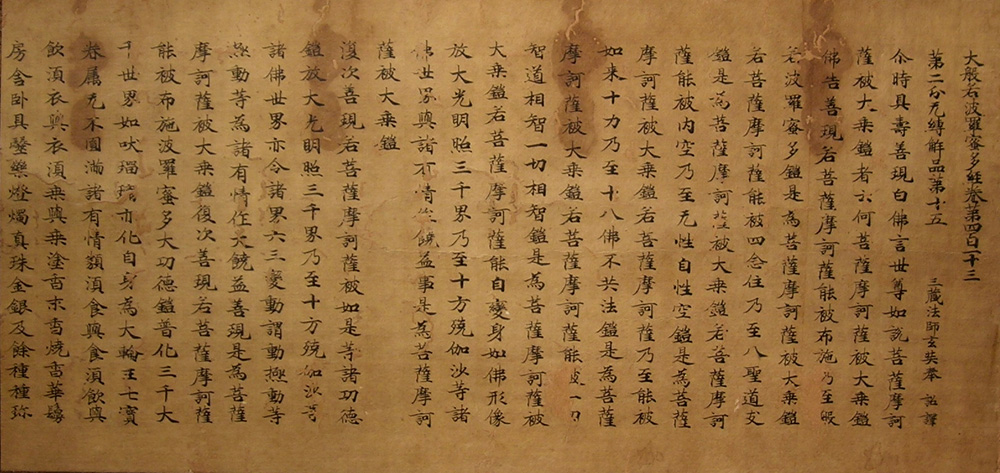 大般若波羅蜜多経卷第四百二十三
第二分无縛解品第十五 三蔵法師玄奘奉 詔譯
尒時具壽善現白佛言世尊如說菩薩摩訶
薩被大乗鎧者云何菩薩摩訶薩被大乗鎧
佛告善現若菩薩摩訶薩能被布施乃至般
若波羅蜜多鎧是為菩薩摩訶薩被大乗鎧
若菩薩摩訶薩能被四念住乃至八聖道支
鎧是為菩薩摩訶薩被大乗鎧若菩薩摩訶
薩能被内空乃至无性自性空鎧是為菩薩
摩訶薩被大乗鎧若菩薩摩訶薩乃至能被
如来十力乃至十八佛不共法鎧是為菩薩
摩訶薩被大乗鎧若菩薩摩訶薩能被一切
智道相智一切相智鎧是為菩薩摩訶薩被
大乗鎧若菩薩摩訶薩能自變身如佛形像
放大光明照三千界乃至十方殑伽沙等諸
佛世界與諸有情作饒益事是為菩薩摩訶
薩被大乗鎧
復次善現若菩薩摩訶薩被如是等諸功德
鎧放大光明照三千界乃至十方殑伽沙等
諸佛世界亦令諸界六三變動謂動極動等
極動等為諸有情作大饒益善現是為菩薩
摩訶薩被大乗鎧復次善現若菩薩摩訶薩
能被布施波羅蜜多大功德鎧普化三千大
千世界如吠瑠璃亦化自身為大輪王七寶
眷属无不圓滿諸有情類湏食與食湏飲與
飲湏衣與衣湏乗與乗塗香末香焼香華鬘
房舎卧具醫藥燈燭真珠金銀及餘種種珎